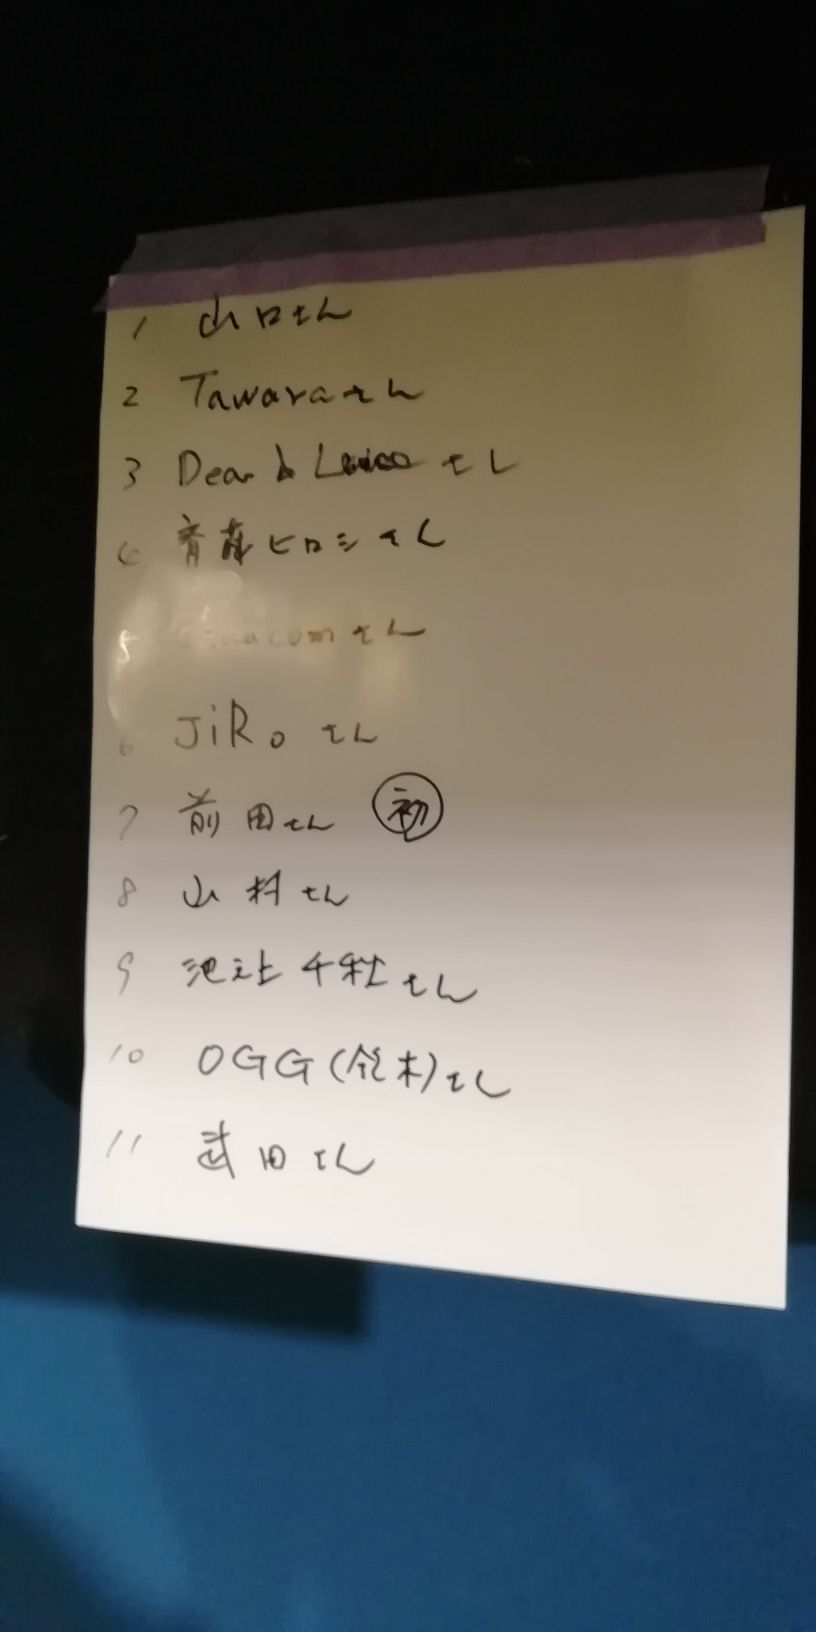 1 山口さん
2 Tawaraさん
3 Dear さん
4 斉藤ヒロシさん
5 comさん
6 JiRoさん
7 前田さん 初
8 山村さん
9 池辻千秋さん
10 OGG(鈴木)さん
11 武田さん